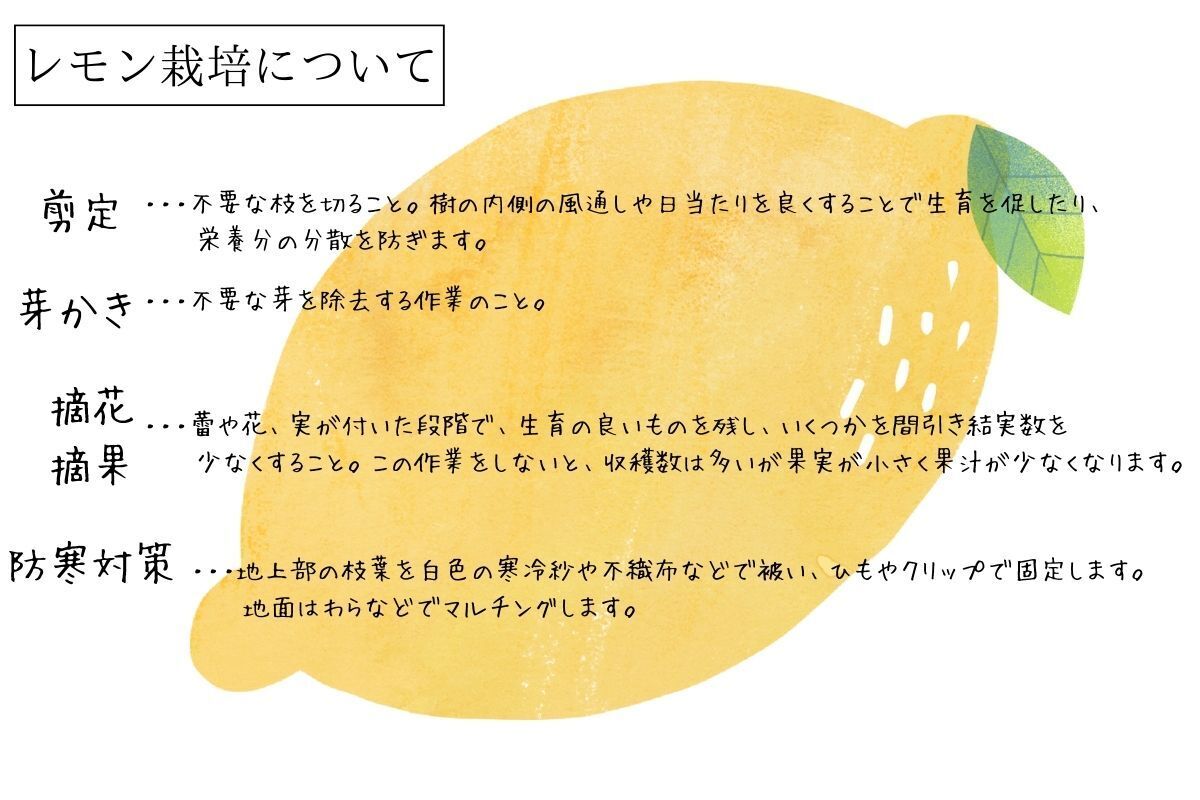 レモン栽培について
剪定・・・不要な枝を切ること。樹の内側の風通しや日当たりを良くすることで生育を促したり、
栄養分の分散を防ぎます。
芽かき・・・不要な芽を除去する作業のこと。
摘花
摘果
・・・蕾や花、実が付いた段階で、生育の良いものを残し、いくつかを間引き結実数を
少なくすること。この作業をしないと、収穫数は多いが果実が小さく果汁が少なくなります。
防寒対策・・・地上部の枝葉を白色の寒冷紗や不織布などで被い、ひもやクリップで固定します。
地面はわらなどでマルチングします。